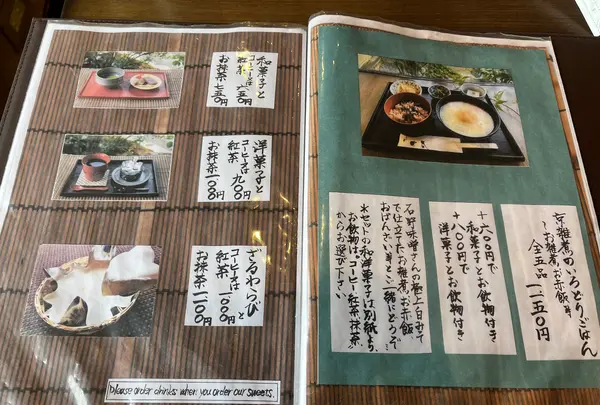 和菓子と
コーヒー又は
紅茶 六五〇円
お抹茶 七五〇円
洋菓子と
コーヒー又は
紅茶 九〇〇円
お抹茶 一〇〇〇円
ざるわらび
コーヒー又は と
紅茶 一〇〇〇円
お抹茶 一一〇〇円
please order drinks when you order our sweets.
京雑煮のいろどりごはん
〜お雑煮、お赤飯、等
全五品 一二五〇円
+六〇〇円で
和菓子とお飲物付き
+八〇〇円で
洋菓子とお飲物付き
石野味噌さんの極上白みそ
で仕立てたお雑煮、お赤飯、
おばんざい等と一緒にどうぞ
※セットの和洋菓子は別紙より、
お飲物は“コーヒー、紅茶、抹茶”
からお選び下さい